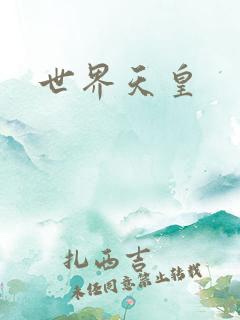 世界天皇
扎西吉
未经同意禁止转载